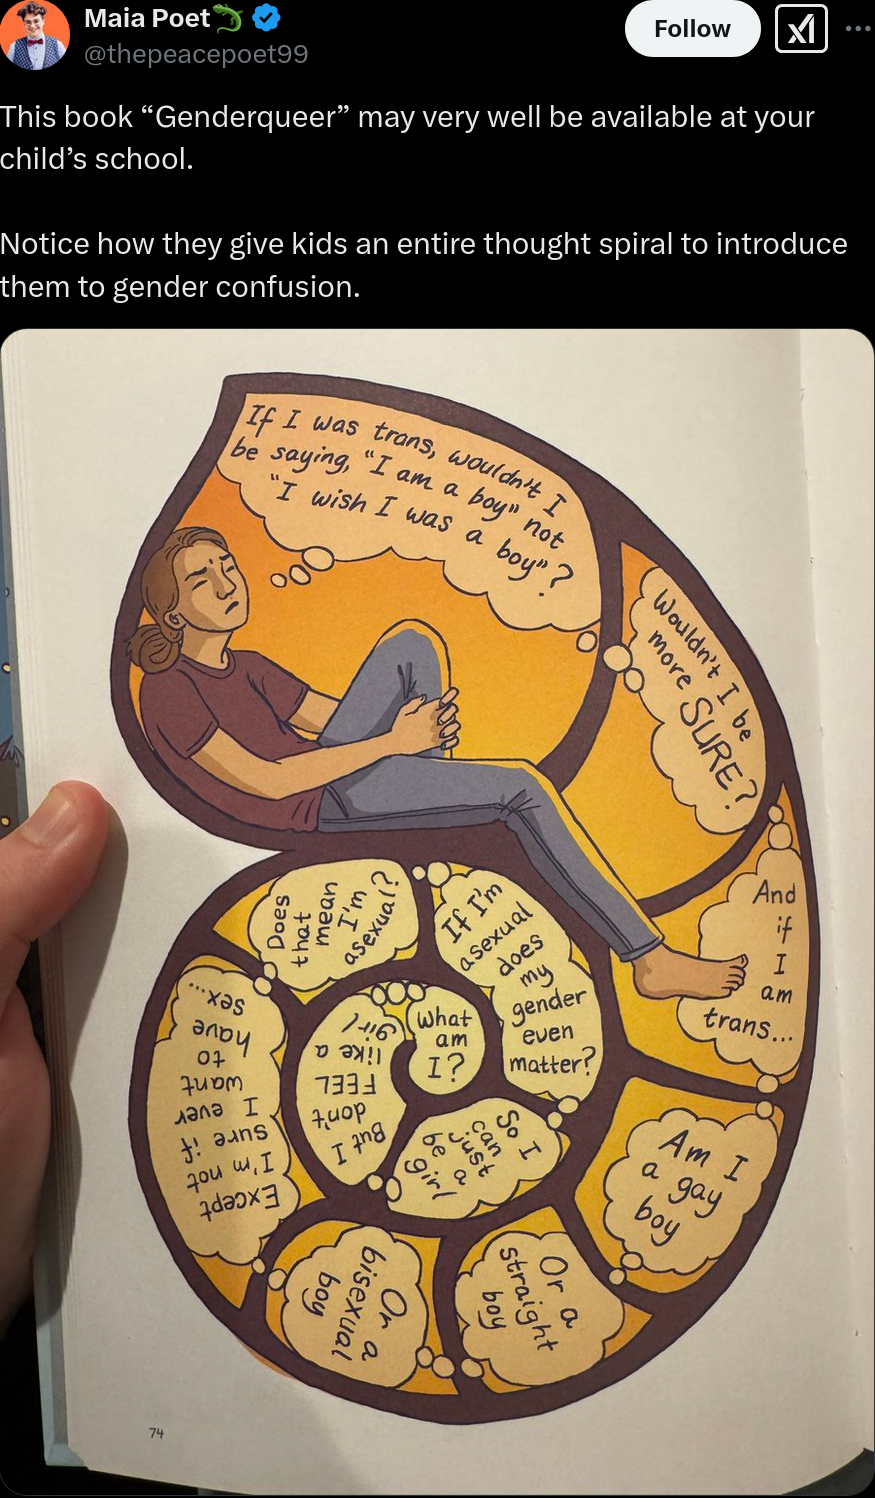 Maia Poet
@thepeacepoet99
Follow
This book “Genderqueer” may very well be available at your
child’s school.
Notice how they give kids an entire thought spiral to introduce
them to gender confusion.
If I was trans, wouldn't I
be saying, "I am a boy" not
"I wish I was a boy"?
Wouldn't I be
more SURE?
And
if
I
am
trans...
Am I
a gay
boy
Or a
straight
boy
Or a
bisexual
boy
Except
I'm not
sure if
I ever
want
to
have
sex...
Does
that
mean
I'm
asexual?
If I'm
asexual
does
my
gender
even
matter?
So I
can
just
be a
girl
But I
don't
FEEL
like a
girl
What
am
I?
74